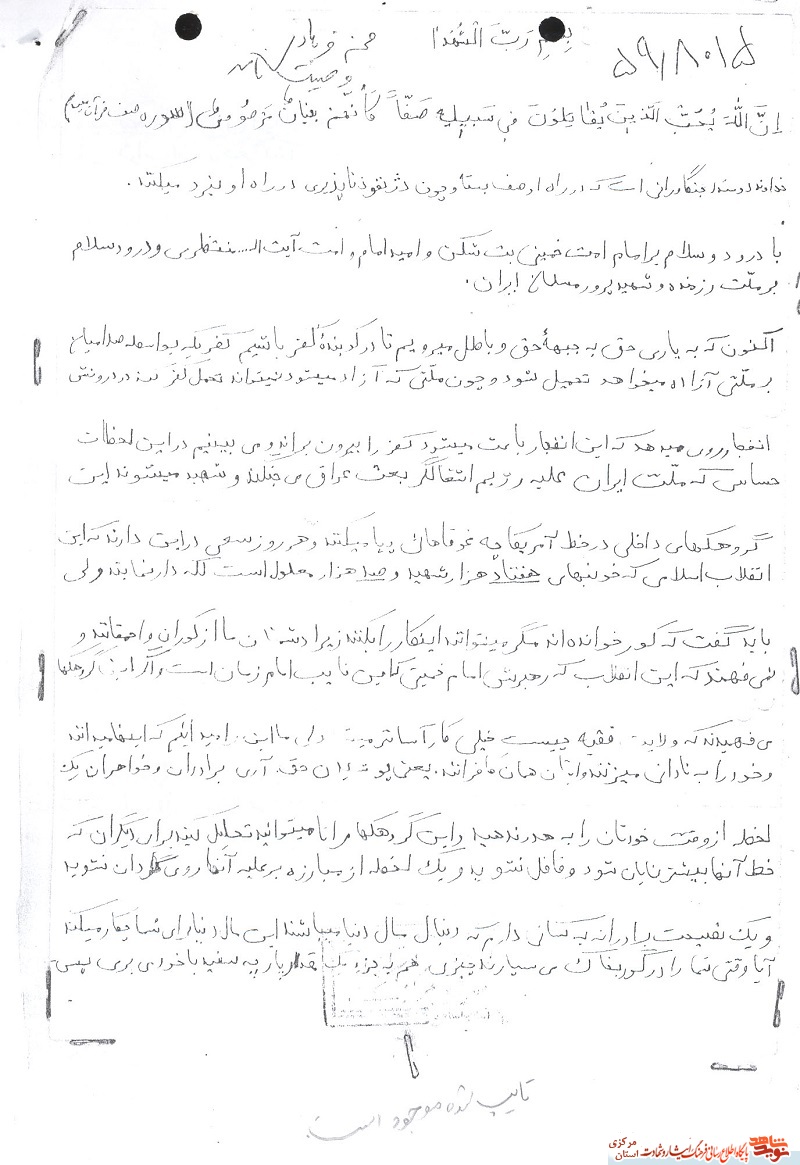 بسم رب الشهدا
۵۹/۸۰۱۵
محسن فرهادی
وصیت نامه
اِنَّ اللّٰهَ یُحِبُّ الَّذینَ یُقاتِلُونَ فی سَبیلِهِ صَفّاً کَأَنَّهُمْ بُنیانٌ مَرْصُوصٌ (سوره صف قرآن مجید)
خداوند دوستدار جنگاورانی است که در راه او صف بسته و چون دژ نفوذناپذیری در راه او نبرد میکنند.
با درود و سلام بر امام امت خمینی بت شکن و امید امام و امت آیت الله منتظری و درود سلام
بر ملت رزمنده و شهید پرور مسلمان ایران.
اکنون که به یاری حق به جبههٔ حق و باطل میرویم تا در کوبندهٔ کفر باشیم کفریکه بواسطه صدامیان
بر ملتی آزاده میخواهد تحمیل شود و چون ملتی که آزاد میشود نمیتواند تحمل کفر کند در درونش
انفجار روی میدهد که این انفجار باعث میشود کفر را بیرون براند و می بینیم در این لحظات
حساس که ملت ایران علیه رژیم اشغالگر بعث عراق می جنگند و شهید میشوند این
گروهکهای داخلی در خط آمریکا چه غوغاهائی بپا میکنند و هر روز سعی در این دارند که این
انقلاب اسلامی که خونبهای هفتاد هزار شهید و صد هزار معلول است لکه دار نمایند ولی
باید گفت که کور خوانده اند مگر میتوانند اینکار را بکنند زیرا دشمنان ما از کوران و احمقانند و
نمی فهمند که این انقلاب که رهبرش امام خمینی که این نایب امام زمان است و اگر این گروهکها
می فهمیدند که ولایت فقیه چیست خیلی کار آسانتر میشد ولی ما این را دیده ایم که اینها میدانند
و خود را به نادانی میزنند و اینان همان کافرانند. یعنی پوشندگان حق. آری برادران و خواهران یک
لحظه از وقت خودتان را به هدر ندهید و این گروهکها را تا میتوانید تحلیل کنید برای دیگران که
خط آنها بیشتر نمایان شود و غافل نشوید و یک لحظه از مبارزه بر علیه آنها روی گردان نشوید
و یک نصیحت برادرانه به کسانی دارم که دنبال مال دنیا میباشند این مال دنیا برای شما چکار میکند
آیا وقتی شما را در گور بخاک می سپارند چیزی هم به جزء یک مقدار پارچه سفید با خود می برید پس
تایپ شده موجود است.
نوید شاهد
پایگاه اطلاع رسانی فرهنگ ایثار و شهادت
استان مرکزی